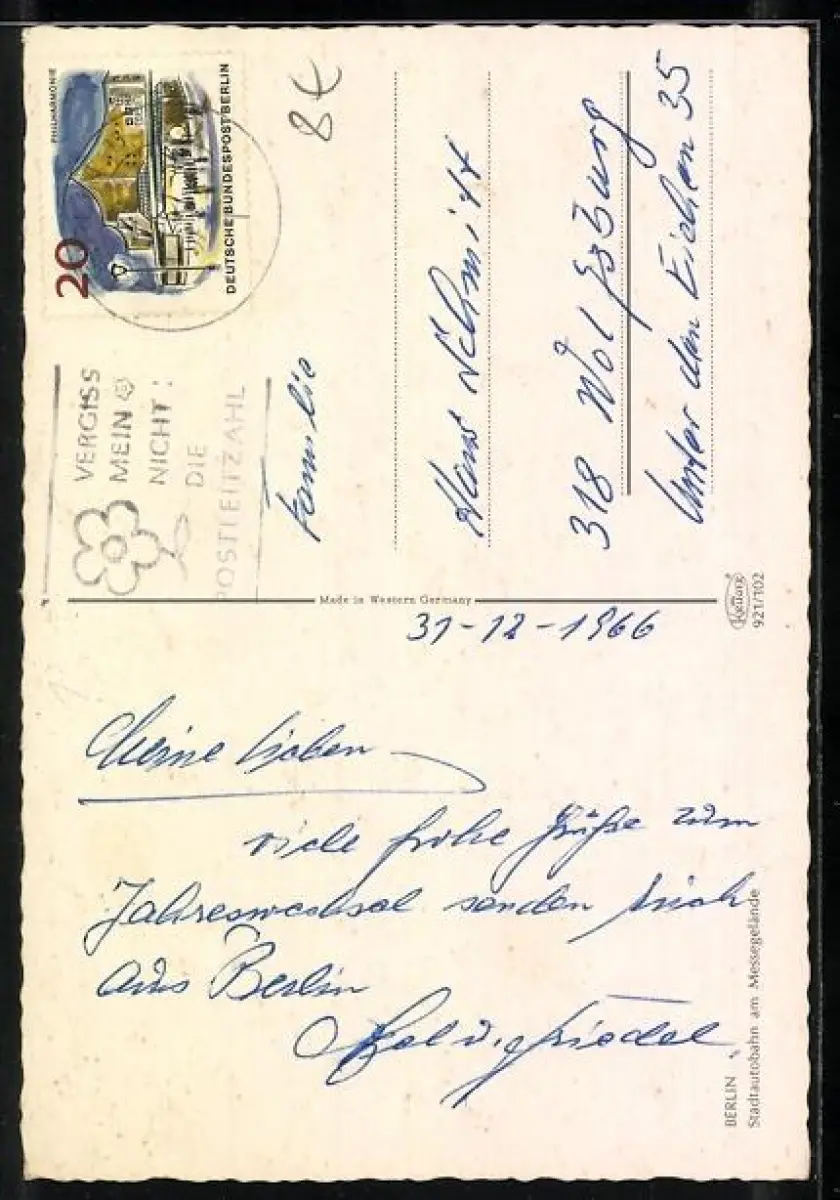 PHILHARMONIE
20
DEUTSCHE BUNDESPOST BERLIN
8€
VERGISS
MEIN
NICHT:
DIE
POSTLEITZAHL
Familie
Hans Schmitt
318 Wolfsburg
Unter den Eichen 35
Made in Western Germany
Krüger
921/102
31-12-1966
Meine Lieben
viele frohe Grüße zum
Jahreswechsel senden Euch
aus Berlin
u. Friedel
BERLIN
Stadtautobahn am Messegelände